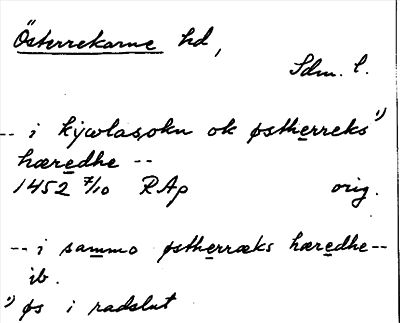 Österrekarne hd,
Sdm. l.
-- i kywlasokn ok østherreks¹)
hæredhe --
1452 7/10 RAp orig.
-- i sammo østherræks hæredhe --
ib.
¹) øs i radslut